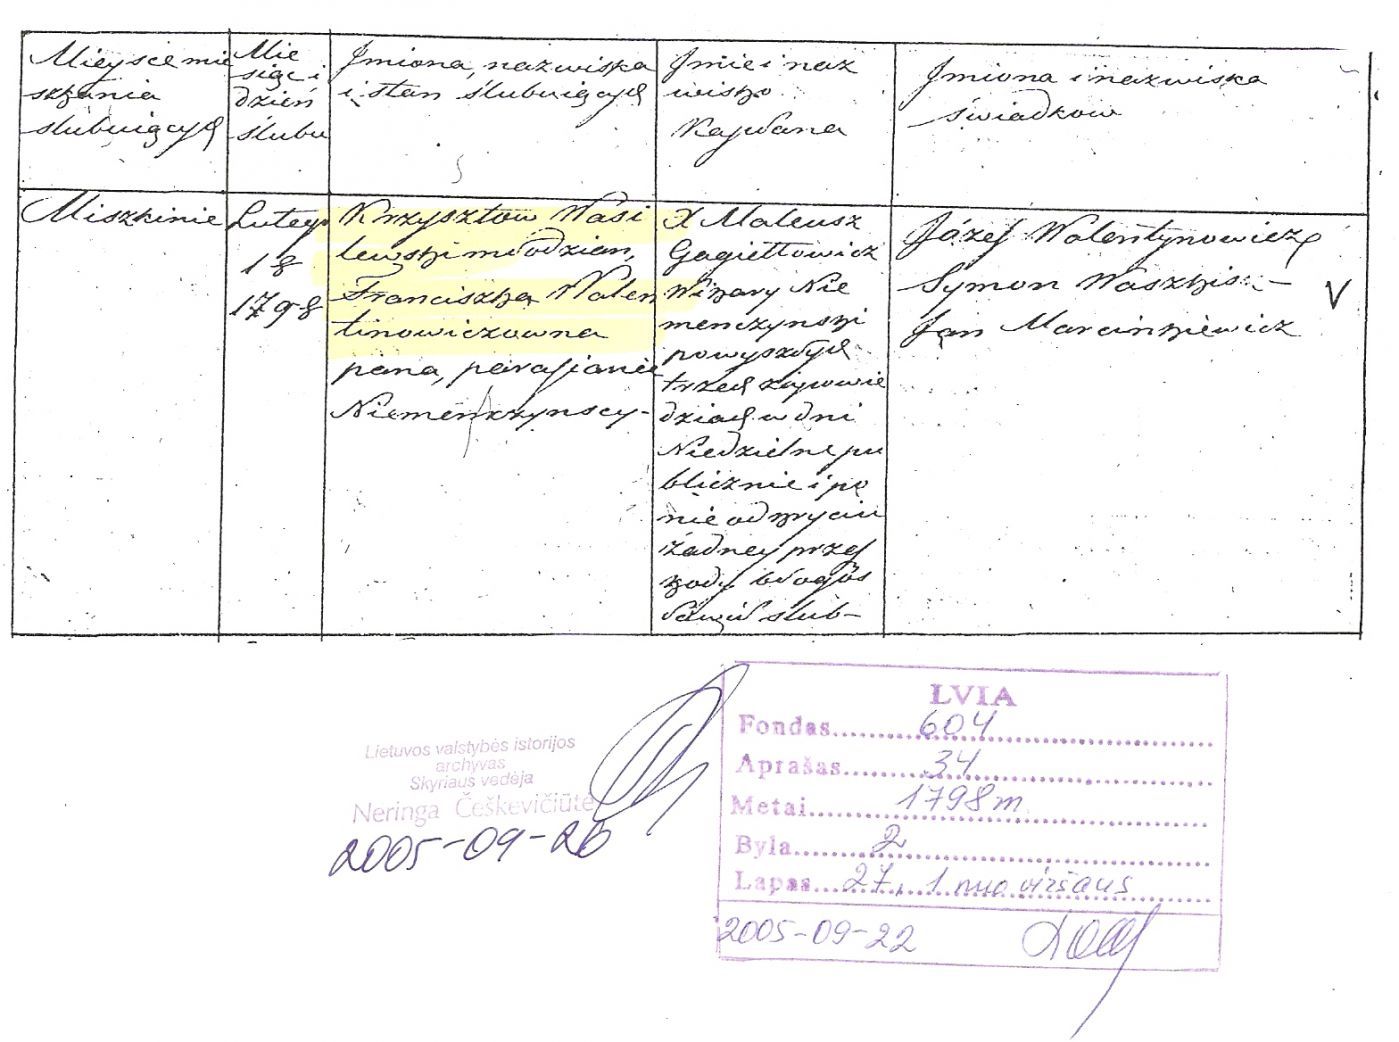 Mieysce mie
szkania
slubuiących
Mie
siąc i
dzień
ślubu
Jmiona, nazwiska
i stan ślubuiących
Jmie i naz
wisko
Kapłana
Jmiona i nazwiska
świadkow
Miszkinie
Lutego
18
1798
Krzysztow Wasi
lewski młodzian,
Franciszka Walen
tinowiczowna
pana, parafianie
Niemenczynscy-
X Mateusz
Gagiettowicz
Wikary Nie
menczynski
powyszłych
trzech zapowie
dziach w dni
Niedzielne pu
blicznie i po
nie odkryciu
żadney przesz
kody błogos
ławił slub-
Józef Walentynowicz
Symon
Jan Marcinkiewicz
V
Lietuvos valstybės istorijos
archyvas
Skyriaus vedėja
Neringa Češkevičiūtė
2005-09-26
LVIA
Fondas 604
Aprašas 34
Metai 1798 m.
Byla 2
Lapas 27, 1 nuo viršaus
2005-09-22